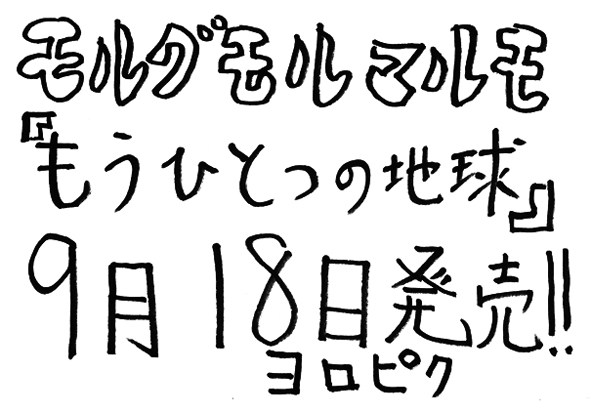 モルグモルマルモ
『もうひとつの地球』
9月18日発売!!
ヨロピク